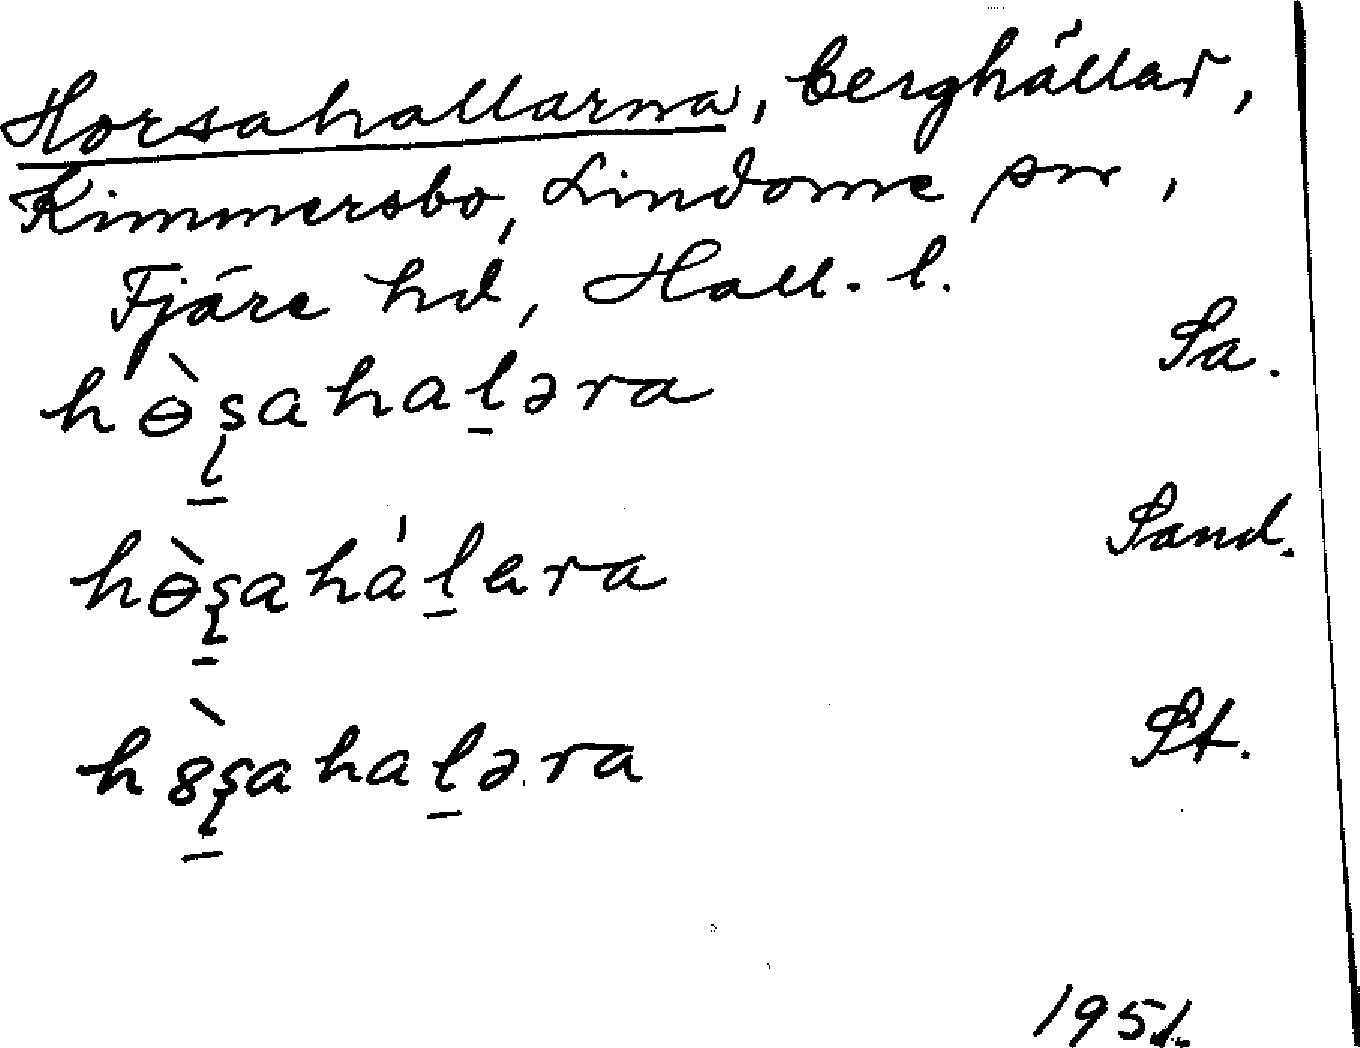 Horsahallarna, berghällar,
Kimmersbo, Lindome sn,
Fjäre hd, Hall. l.
Sa.
hɵ̀ʂahaḻəra
Sand.
hɵ̀ʂaháḻera
St.
h8̀ʂahaḻəra
1951.